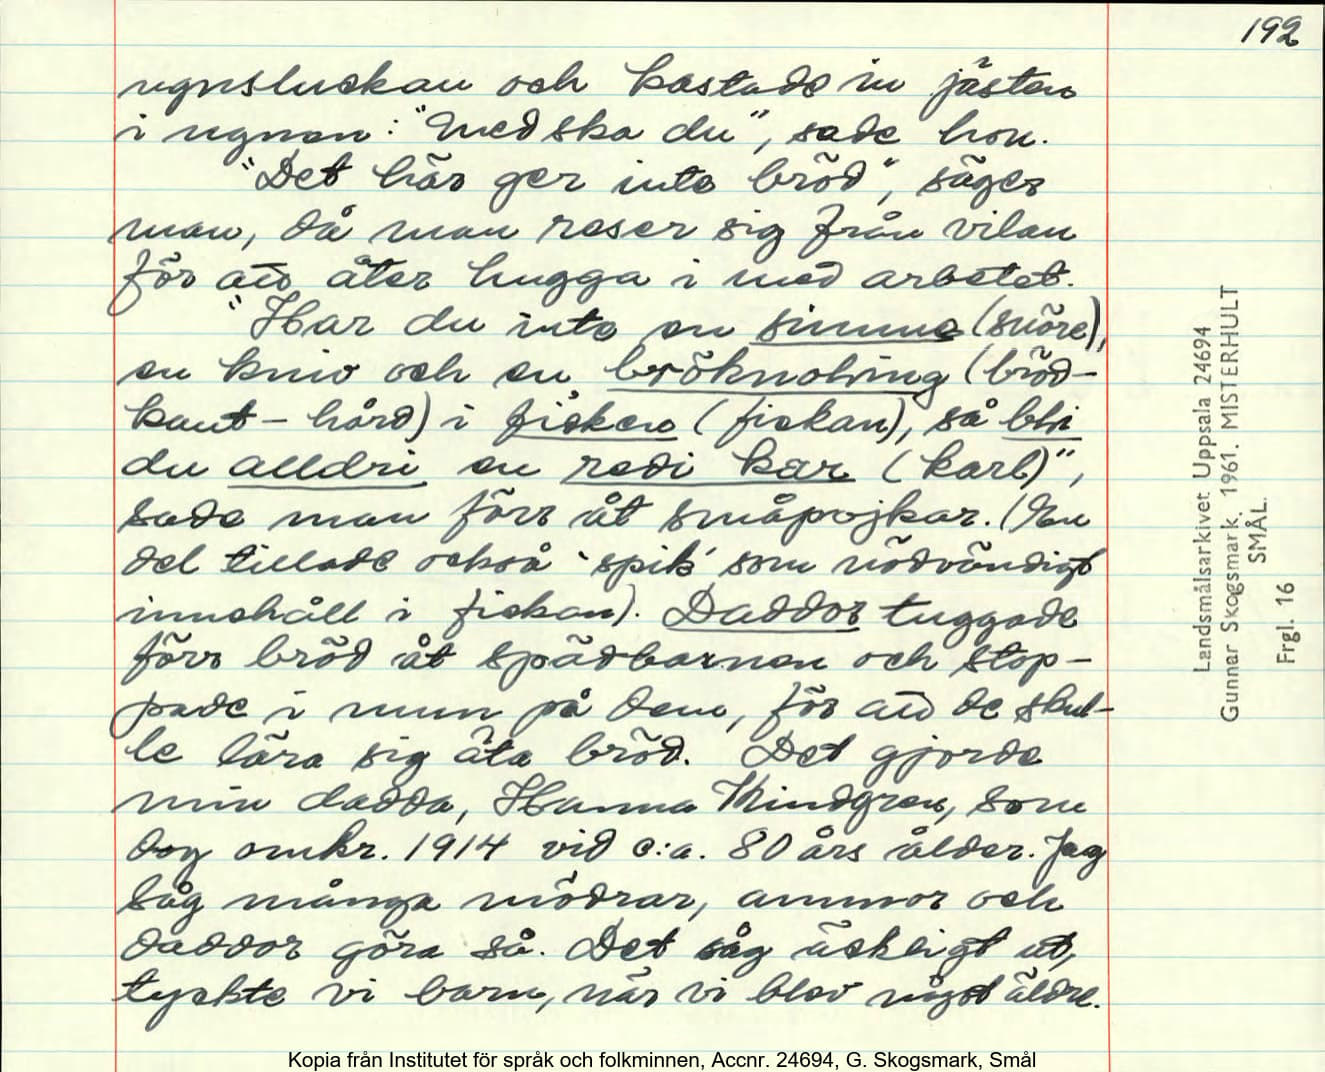 192
ugnsluckan och kastade in jästen
i ugnen: "Med ska du", sade hon.
"Det här ger inte bröd", säger
man, då man reser sig från vilan
för att åter hugga i med arbetet.
"Har du inte en simme (snöre),
en kniv och en bröknolving (bröd-
kant - hård) i fisken (fickan), så bli
du alldri en redi kar (karl)",
sade man förr åt småpojkar. (En
del tillade också 'spik' som nödvändigt
innehåll i fickan). Daddor tuggade
förr bröd åt spädbarnen och stop-
pade i mun på dem, för att de skul-
le lära sig äta bröd. Det gjorde
min dadda, Hanna Mindgren, som
dog omkr. 1914 vid c:a. 80 års ålder. Jag
såg många mödrar, ammor och
daddor göra så. Det såg äckligt ut,
tyckte vi barn, när vi blev något äldre.
Landsmålsarkivet Uppsala 24694
Gunnar Skogsmark. 1961. MISTERHULT
SMÅL.
Frgl. 16
Kopia från Institutet för språk och folkminnen, Accnr. 24694, G. Skogsmark, Smål